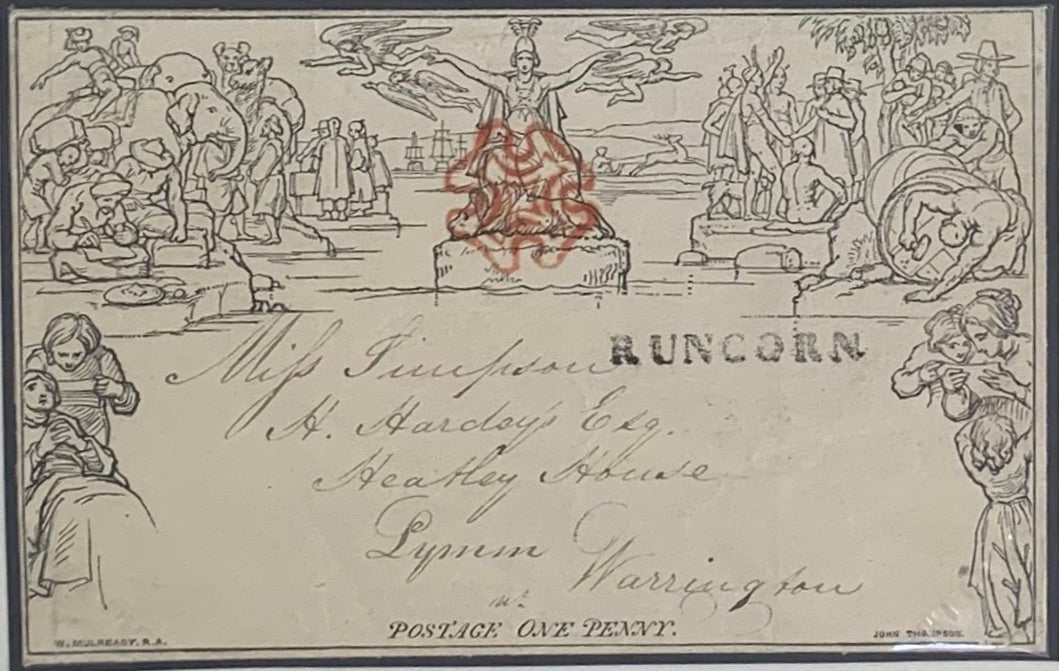 RUNCORN
Miss Simpson
H. Hardey's Esq.
Heatley House
Lymm
Warrington
POSTAGE ONE PENNY.
W. MULREADY, R.A.
JOHN THOMPSON.